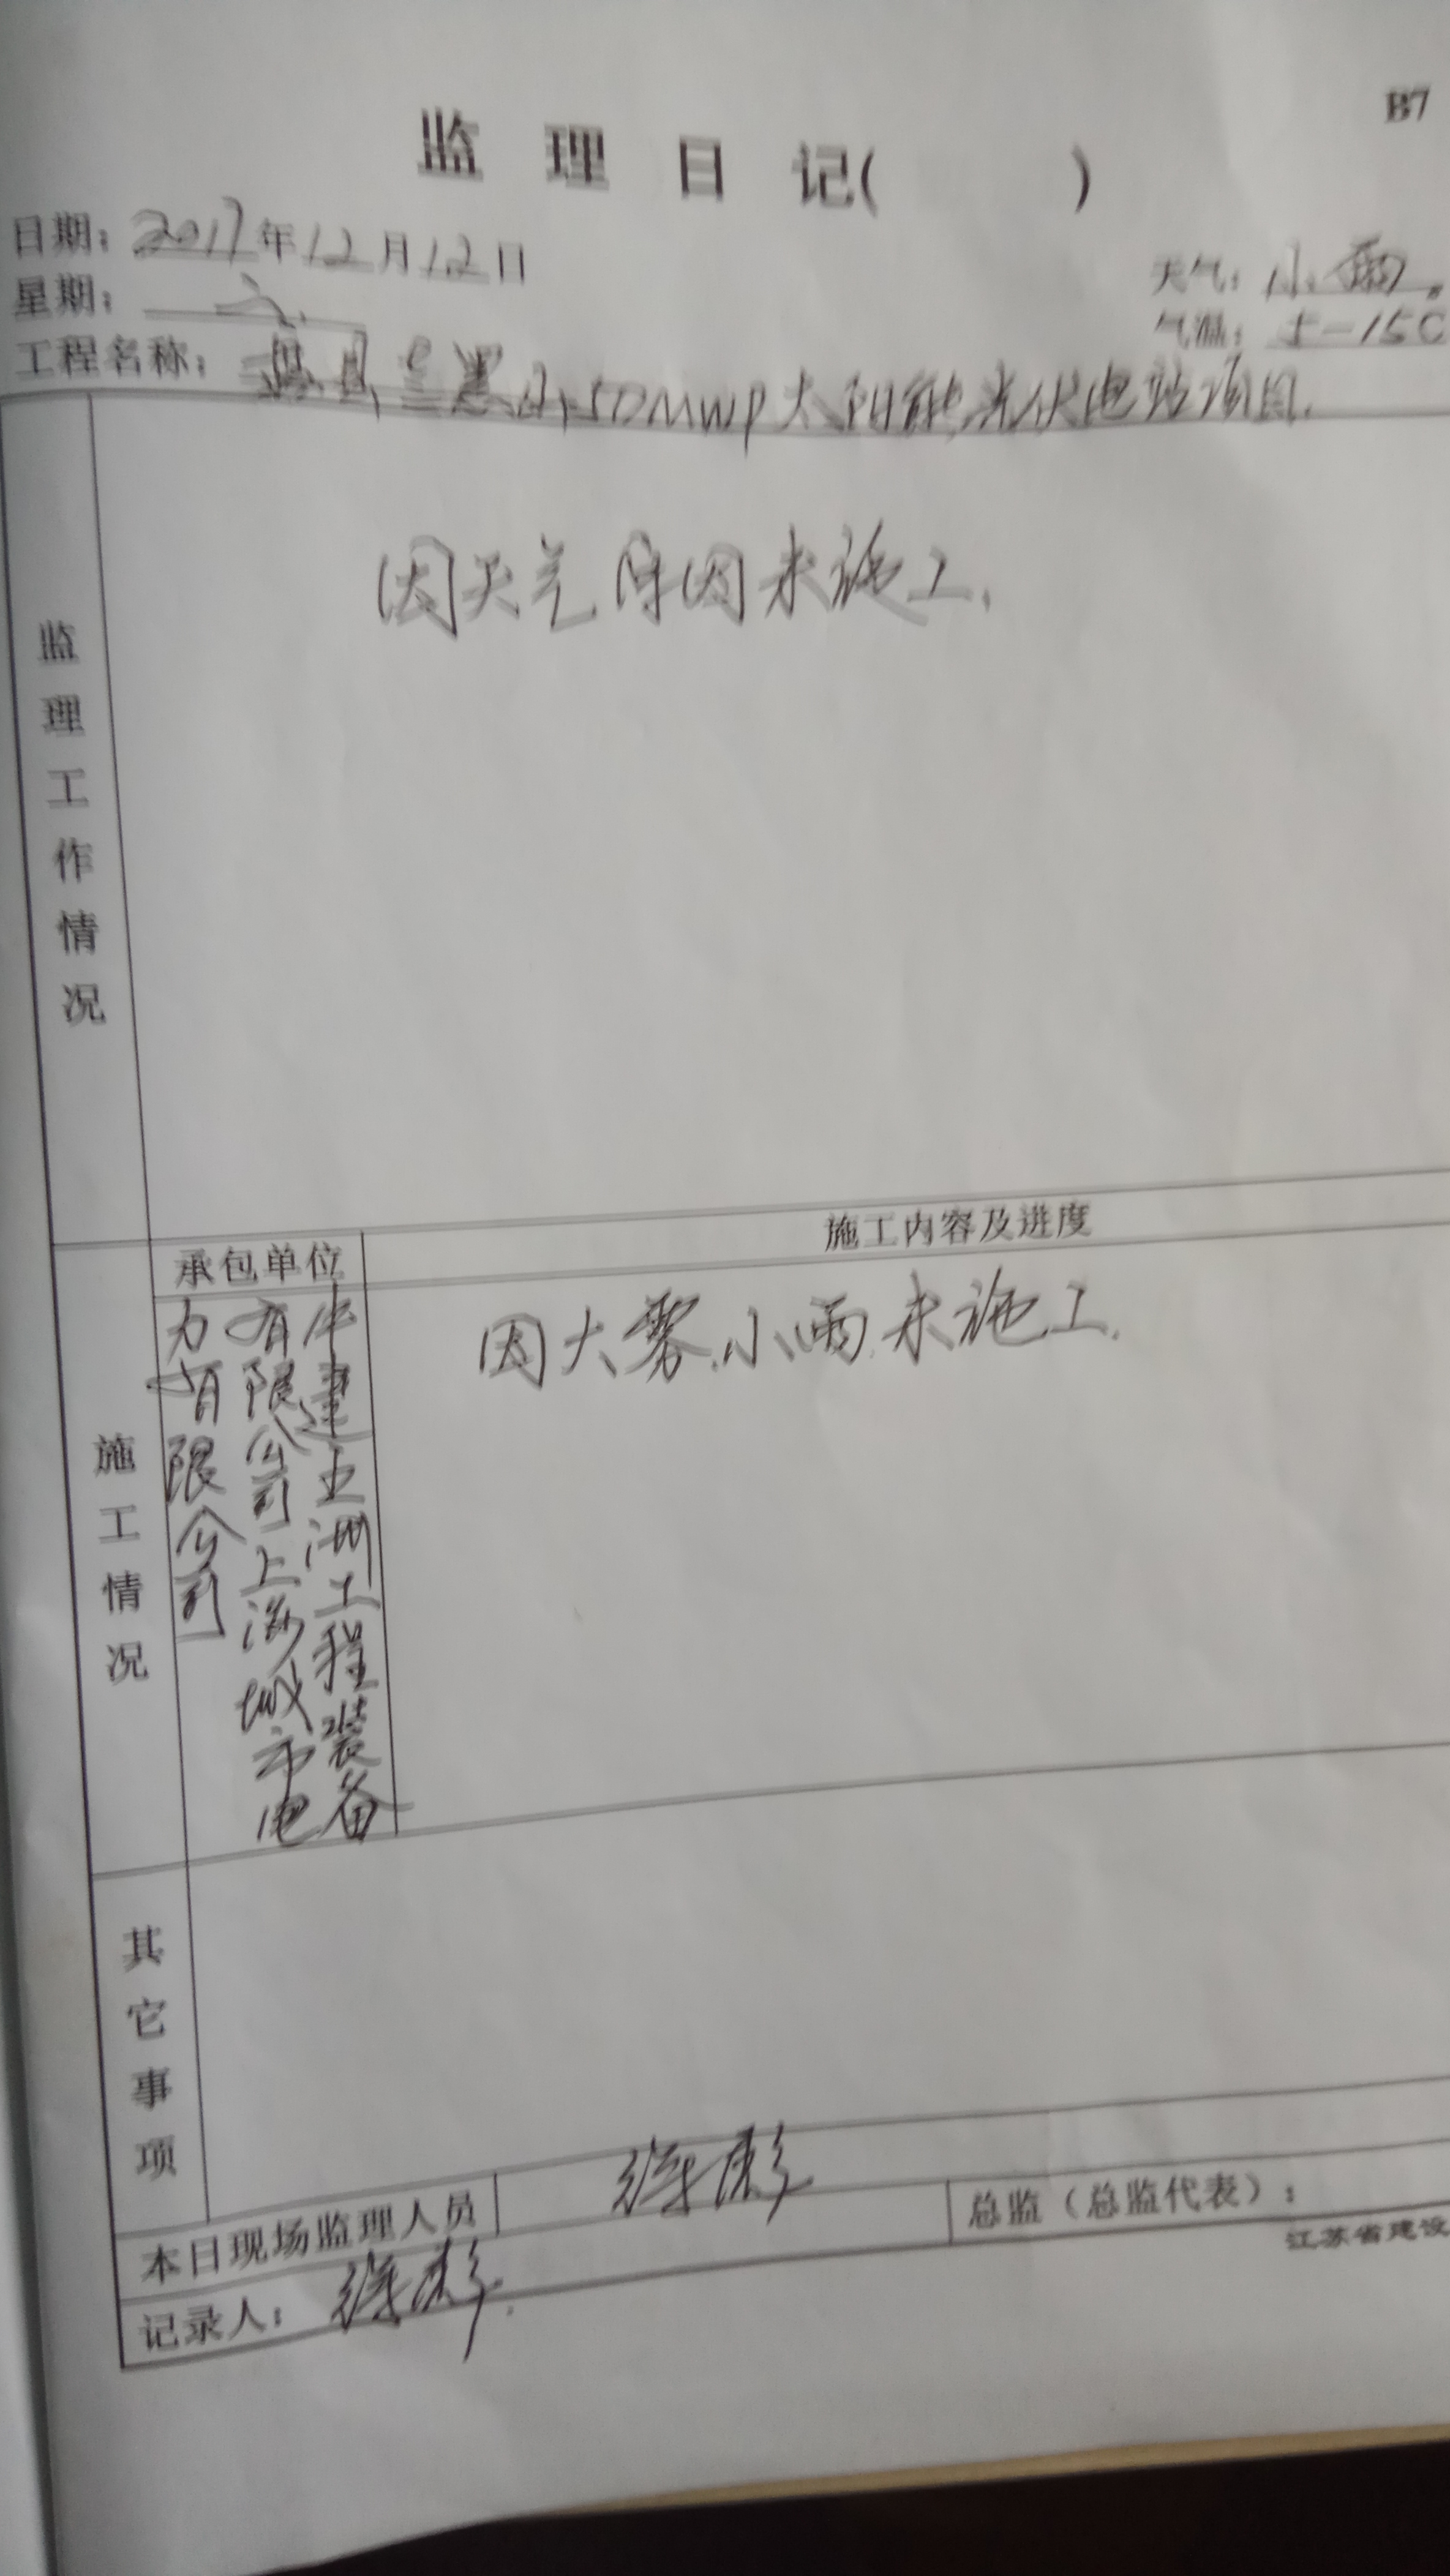 B7
监 理 日 记( )
日期: 2017年12月12日
天气: 小雨.
星期: 二.
气温: 5-15C
工程名称: 50MWP太阳能光伏电站项目.
监理工作情况
因天气原因未施工.
施工情况
承包单位
施工内容及进度
中建五洲工程装备
有限公司上海城市电
力有限公司
因大雾.小雨.未施工.
其它事项
本日现场监理人员
总监(总监代表):
记录人:
江苏省建设